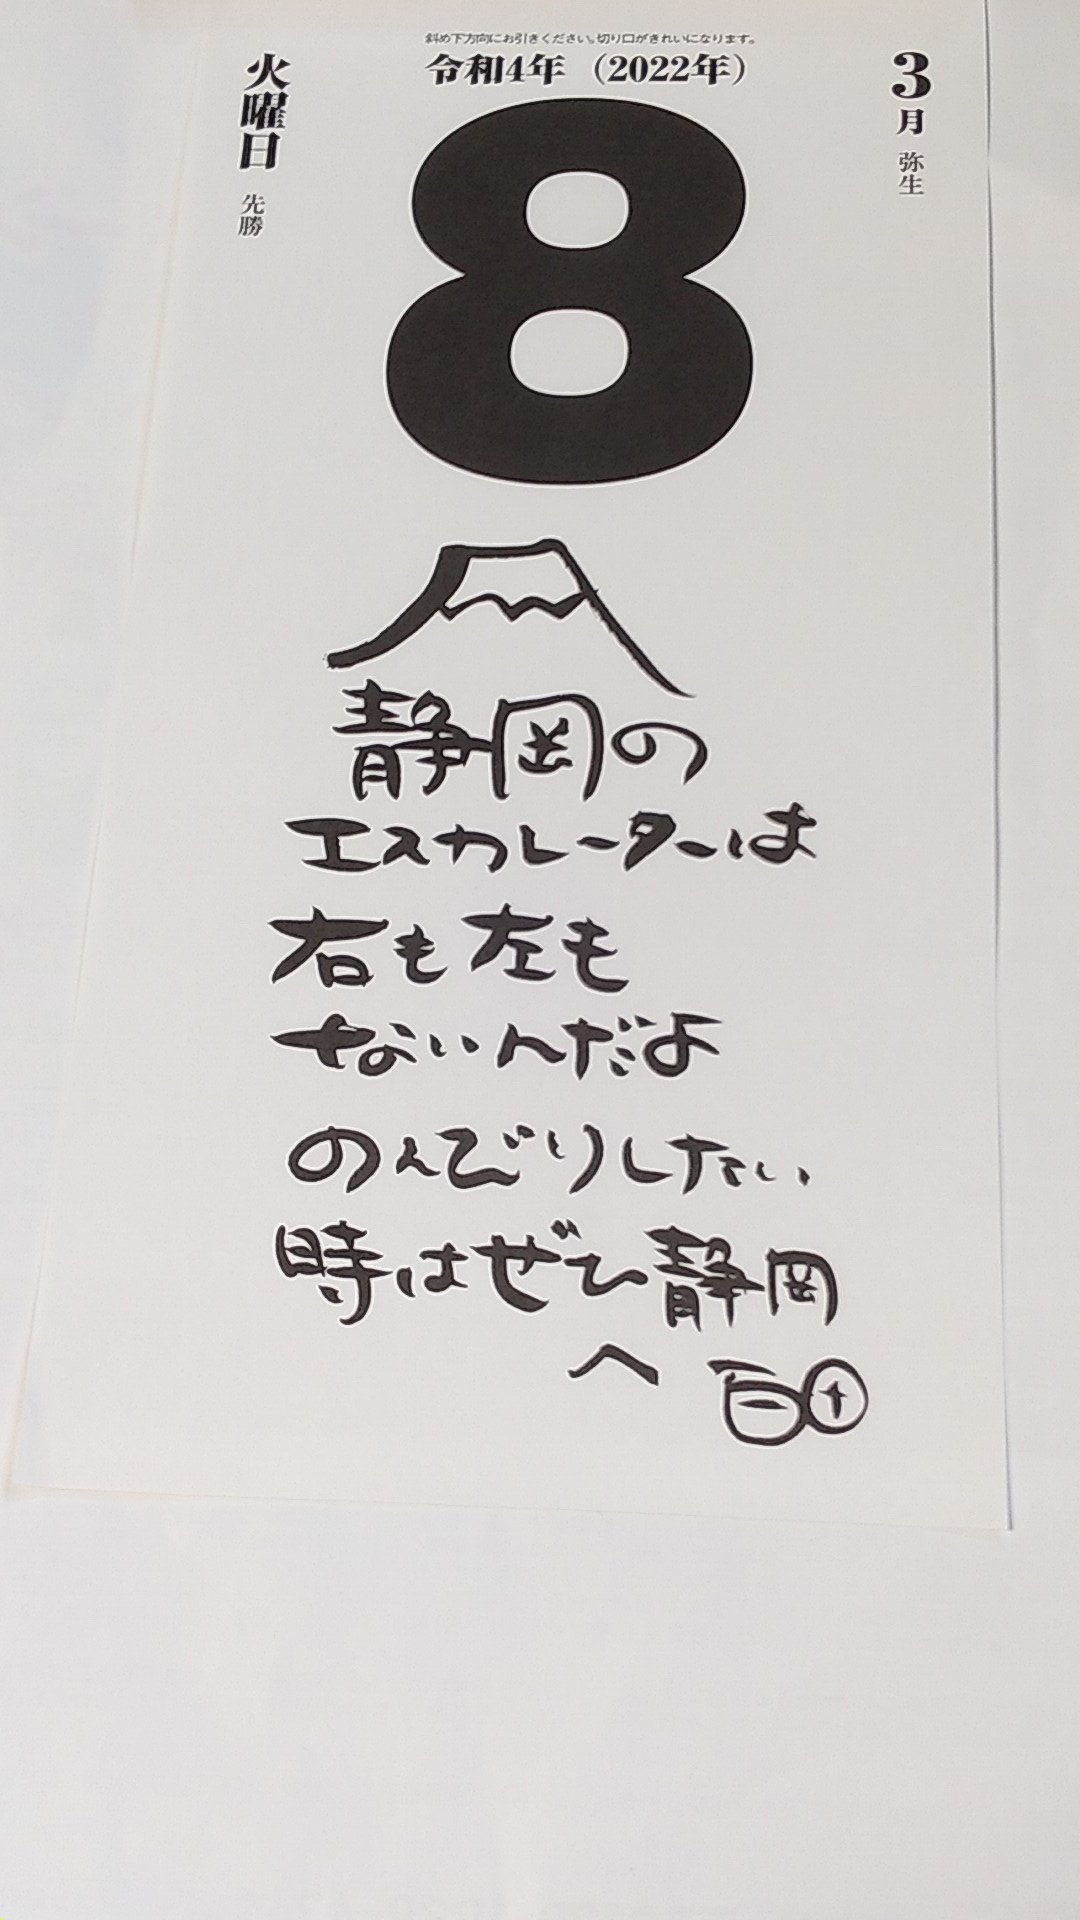 斜め下方向にお引きください。切り口がきれいになります。
令和4年（2022年）
3月 弥生
火曜日 先勝
8
静岡の
エスカレーターは
右も左も
ないんだよ
のんびりしたい
時はぜひ静岡
へ